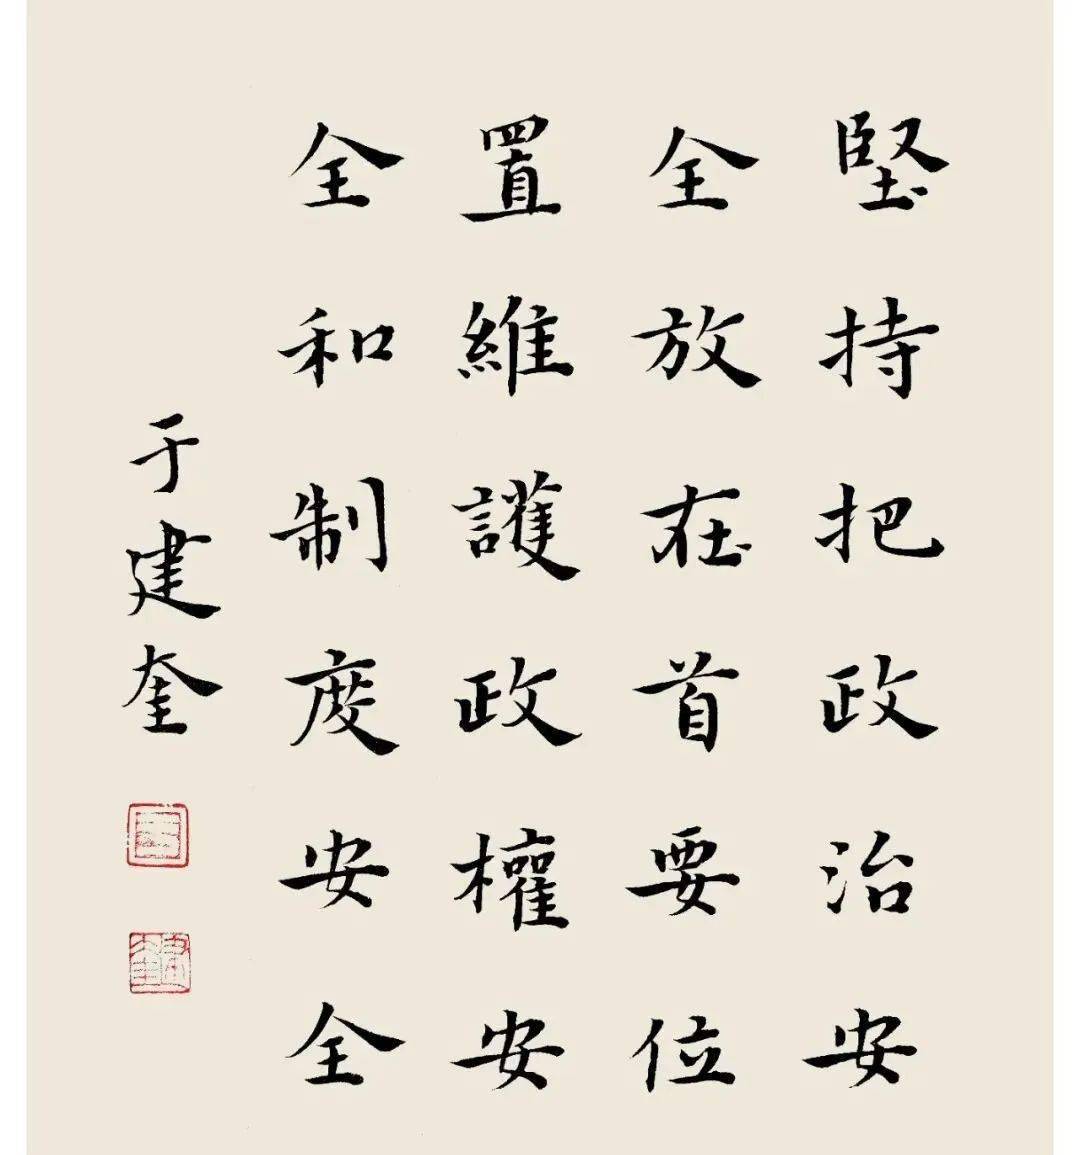 堅持把政治安
全放在首要位
置維護政權安
全和制度安全
于建奎